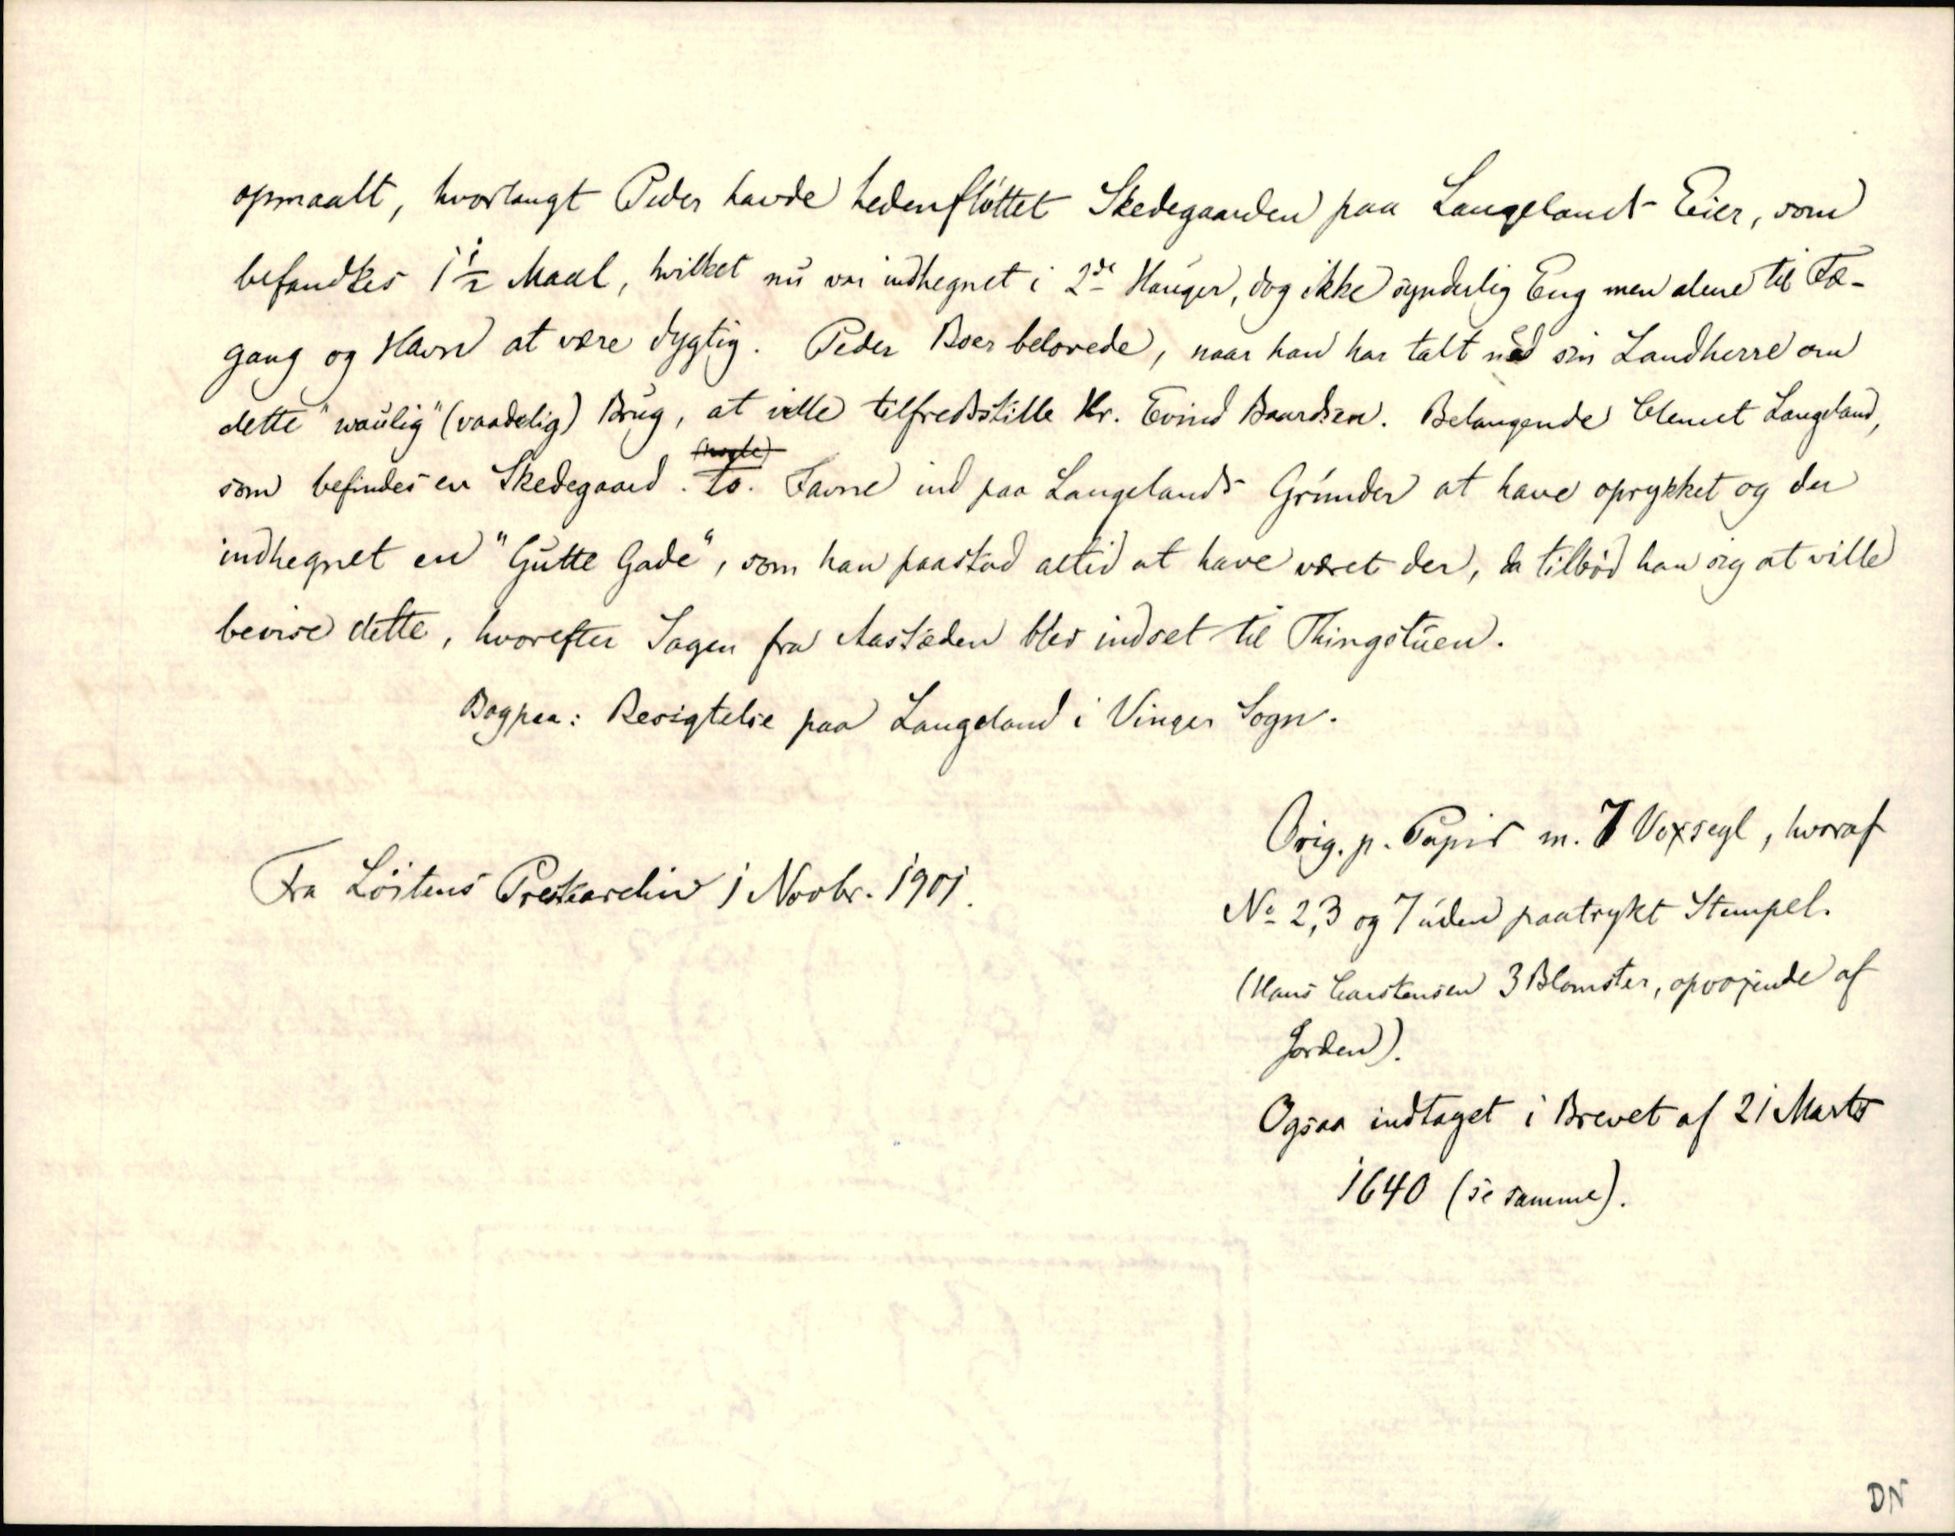 opmaalt, hvorlangt Peder havde hedenfløttet Skedegaarden paa Langelands Eier, som
befandtes 1 1/2 Maal, hvilket nu var indhegnet i 2de Hauger, dog ikke synderlig Eng men alene til Fæ-
gang og Havn at være dygtig. Peder Boer belovede, naar han har talt med sin Landherre om
dette "waulig" (vaadelig) Brug, at ville tilfredsstille Hr. Evind Baardsen. Belangende Clemet Langeland,
som befindes en Skedegaard .to. Favne ind paa Langelands Grunder at have oprykket og der
indhegnet en "Gutte Gade", som han paastod altid at have været der, da tilbød han sig at ville
bevise dette, hvorefter Sagen fra Aastæden blev indset til Thingstuen.
Bagpaa: Besigtelse paa Langeland i Vinger Sogn.
Orig. p. Papir m. 7 Voxsegl, hvoraf
No 2, 3 og 7 uden paatrykt Stempel.
(Hans Carstensen 3 Blomster, opvoxende af
Jorden).
Ogsaa indtaget i Brevet af 21 Marts
1640 (se samme).
Fra Løitens Prestearchiv 1 Novbr. 1901.
DN